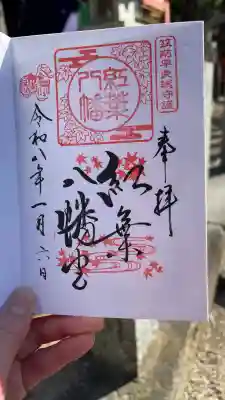 筑前早良 守護
奉拝
紅葉
八幡
紅葉
八幡宮
令和八年一月六日